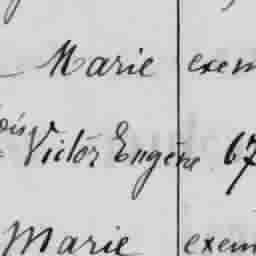 Marie exem
ois
Victor Eugène 67
Marie exem